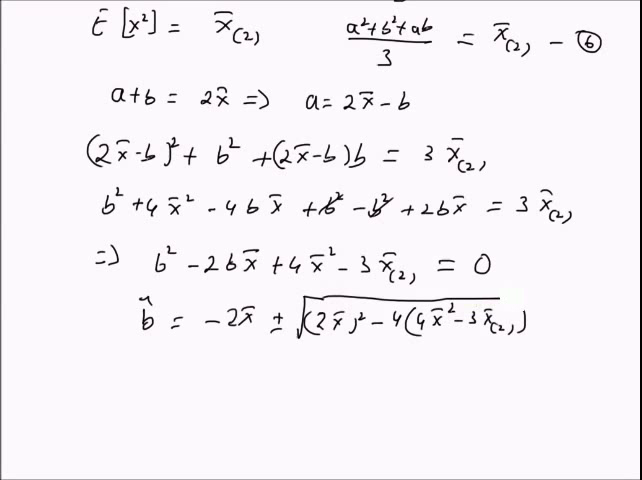 E [x²] = x̄₍₂₎   (a²+b²+ab)/3 = x̄₍₂₎ – ⑥
a+b = 2x̄ => a = 2x̄ – b
(2x̄-b)² + b² + (2x̄-b)b = 3 x̄₍₂₎
b² + 4x̄² - 4bx̄ + b² - b² + 2bx̄ = 3 x̄₍₂₎
=> b² - 2bx̄ + 4x̄² - 3x̄₍₂₎ = 0
b̂ = -2x̄ ± √((2x̄)² - 4(4x̄² - 3x̄₍₂₎)